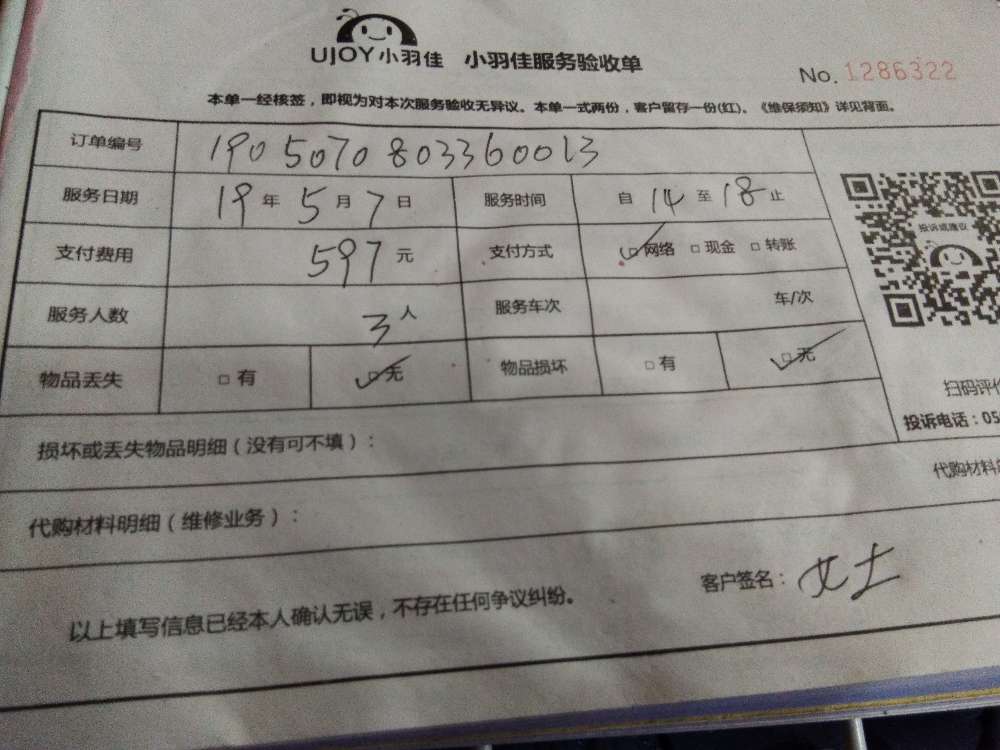 UJOY小羽佳 小羽佳服务验收单
No. 1286322
本单一经核签，即视为对本次服务验收无异议。本单一式两份，客户留存一份(红)、《维保须知》详见背面。
订单编号 1905070803360013
服务日期 19年5月7日 服务时间 自14至18止
支付费用 597元 支付方式 ☑网络 □现金 □转账
投诉或建议
服务人数 3人 服务车次 车/次
物品丢失 □有 ☑无 物品损坏 □有 ☑无
扫码评价
投诉电话：05
损坏或丢失物品明细（没有可不填）：
代购材料
代购材料明细（维修业务）：
客户签名：女士
以上填写信息已经本人确认无误，不存在任何争议纠纷。